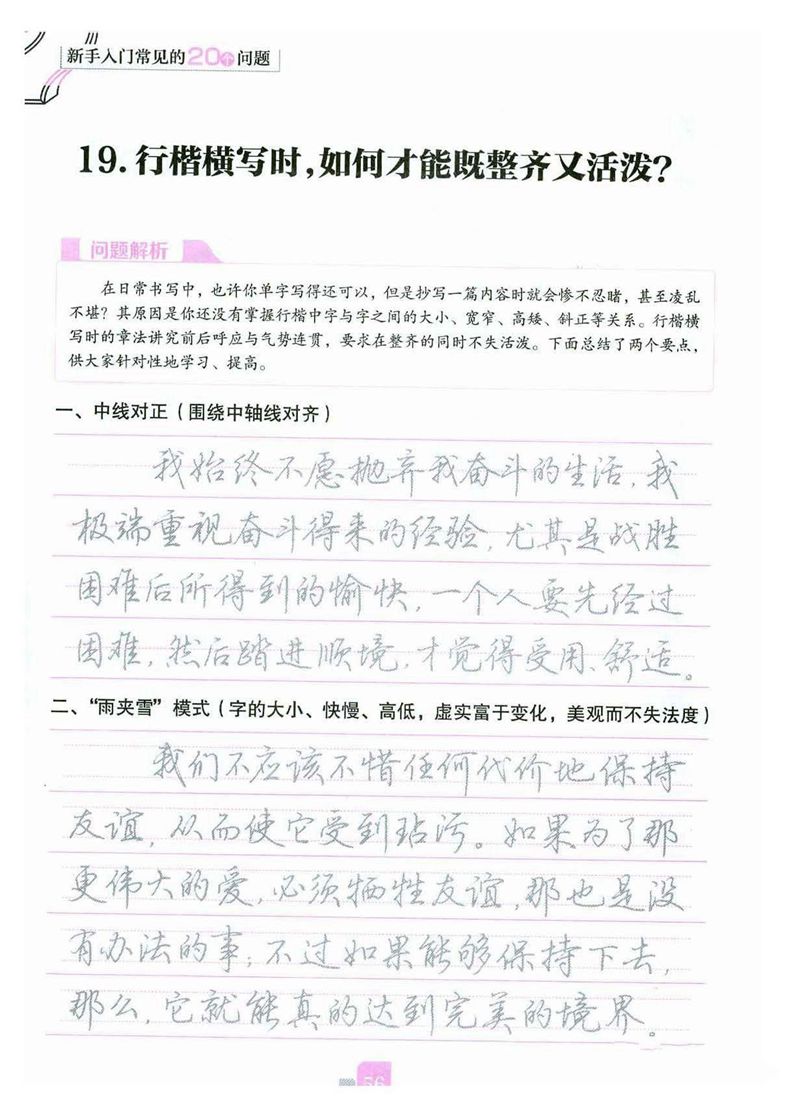 新手入门常见的20个问题
19.行楷横写时,如何才能既整齐又活泼?
问题解析
在日常书写中，也许你单字写得还可以，但是抄写一篇内容时就会惨不忍睹，甚至凌乱
不堪？其原因是你还没有掌握行楷中字与字之间的大小、宽窄、高矮、斜正等关系。行楷横
写时的章法讲究前后呼应与气势连贯，要求在整齐的同时不失活泼。下面总结了两个要点，
供大家针对性地学习、提高。
一、中线对正（围绕中轴线对齐）
我始终不愿抛弃我奋斗的生活，我
极端重视奋斗得来的经验，尤其是战胜
困难后所得到的愉快，一个人要先经过
困难，然后踏进顺境，才觉得受用、舒适。
二、“雨夹雪”模式（字的大小、快慢、高低，虚实富于变化，美观而不失法度）
我们不应该不惜任何代价地保持
友谊，从而使它受到玷污。如果为了那
更伟大的爱，必须牺牲友谊，那也是没
有办法的事；不过如果能够保持下去，
那么，它就能真的达到完美的境界。
56